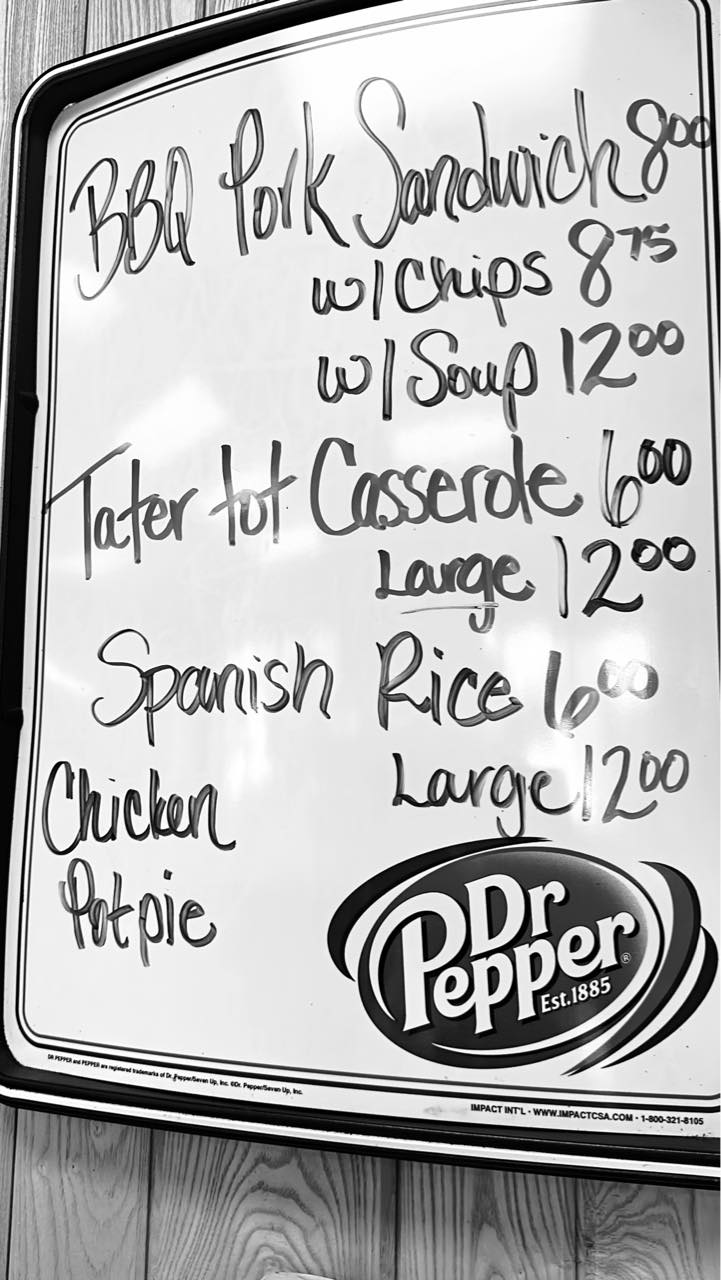 BBQ Pork Sandwich 8⁰⁰
w/Chips 8⁷⁵
w/Soup 12⁰⁰
Tater tot Casserole 6⁰⁰
Large 12⁰⁰
Spanish Rice 6⁰⁰
Large 12⁰⁰
Chicken
Potpie
Dr
Pepper®
Est.1885
DR PEPPER and PEPPER are registered trademarks of Dr. Pepper/Seven Up, Inc. ©Dr. Pepper/Seven Up, Inc.
IMPACT INT'L · WWW.IMPACTCSA.COM · 1-800-321-8105